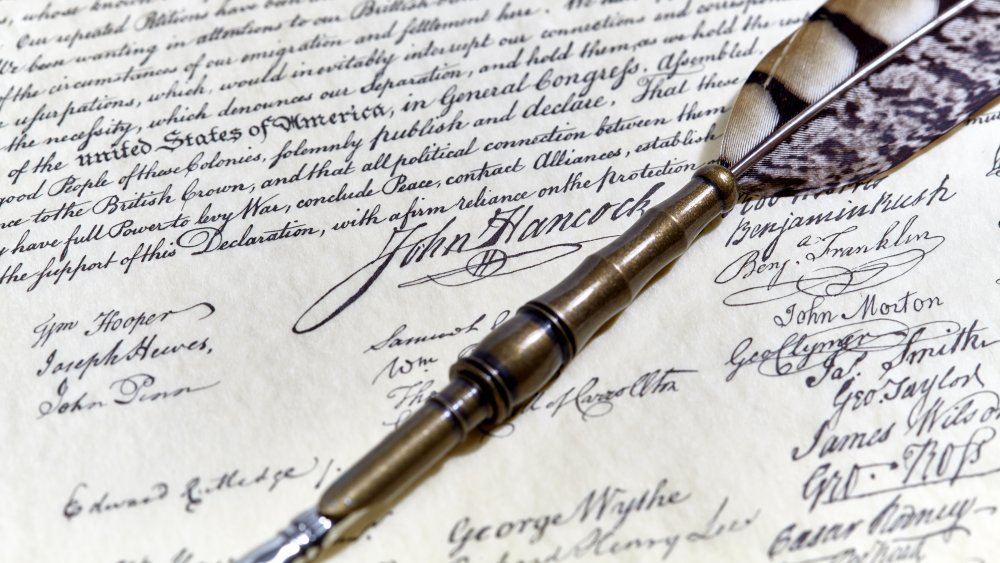 whose known
Our repeated Petitions have been
been wanting in attentions to our Brittish
of the circumstances of our emigration and settlement here. We
usurpations, which, would inevitably interrupt our connections and correspon
the necessity, which denounces our Separation, and hold them, as we hold the res
of the united States of America, in General Congress. Assembled,
good People of these Colonies, solemnly publish and declare. That these
ce to the British Crown, and that all political connection between them
y have full Power to levy War, conclude Peace, contract Alliances, establish
the support of this Declaration, with a firm reliance on the protection
John Hancock
Wm Hooper
Joseph Hewes,
John Penn
Edward Rutledge /.
Samuel
Wm
Tho
of Carrollton
George Wythe
Richard Henry Lee
Benjamin Rush
Benj. Franklin
John Morton
Geo Clymer
Jas. Smith
Geo Taylor
James Wilson
Geo. Ross
Caesar Rodney
Geo Read